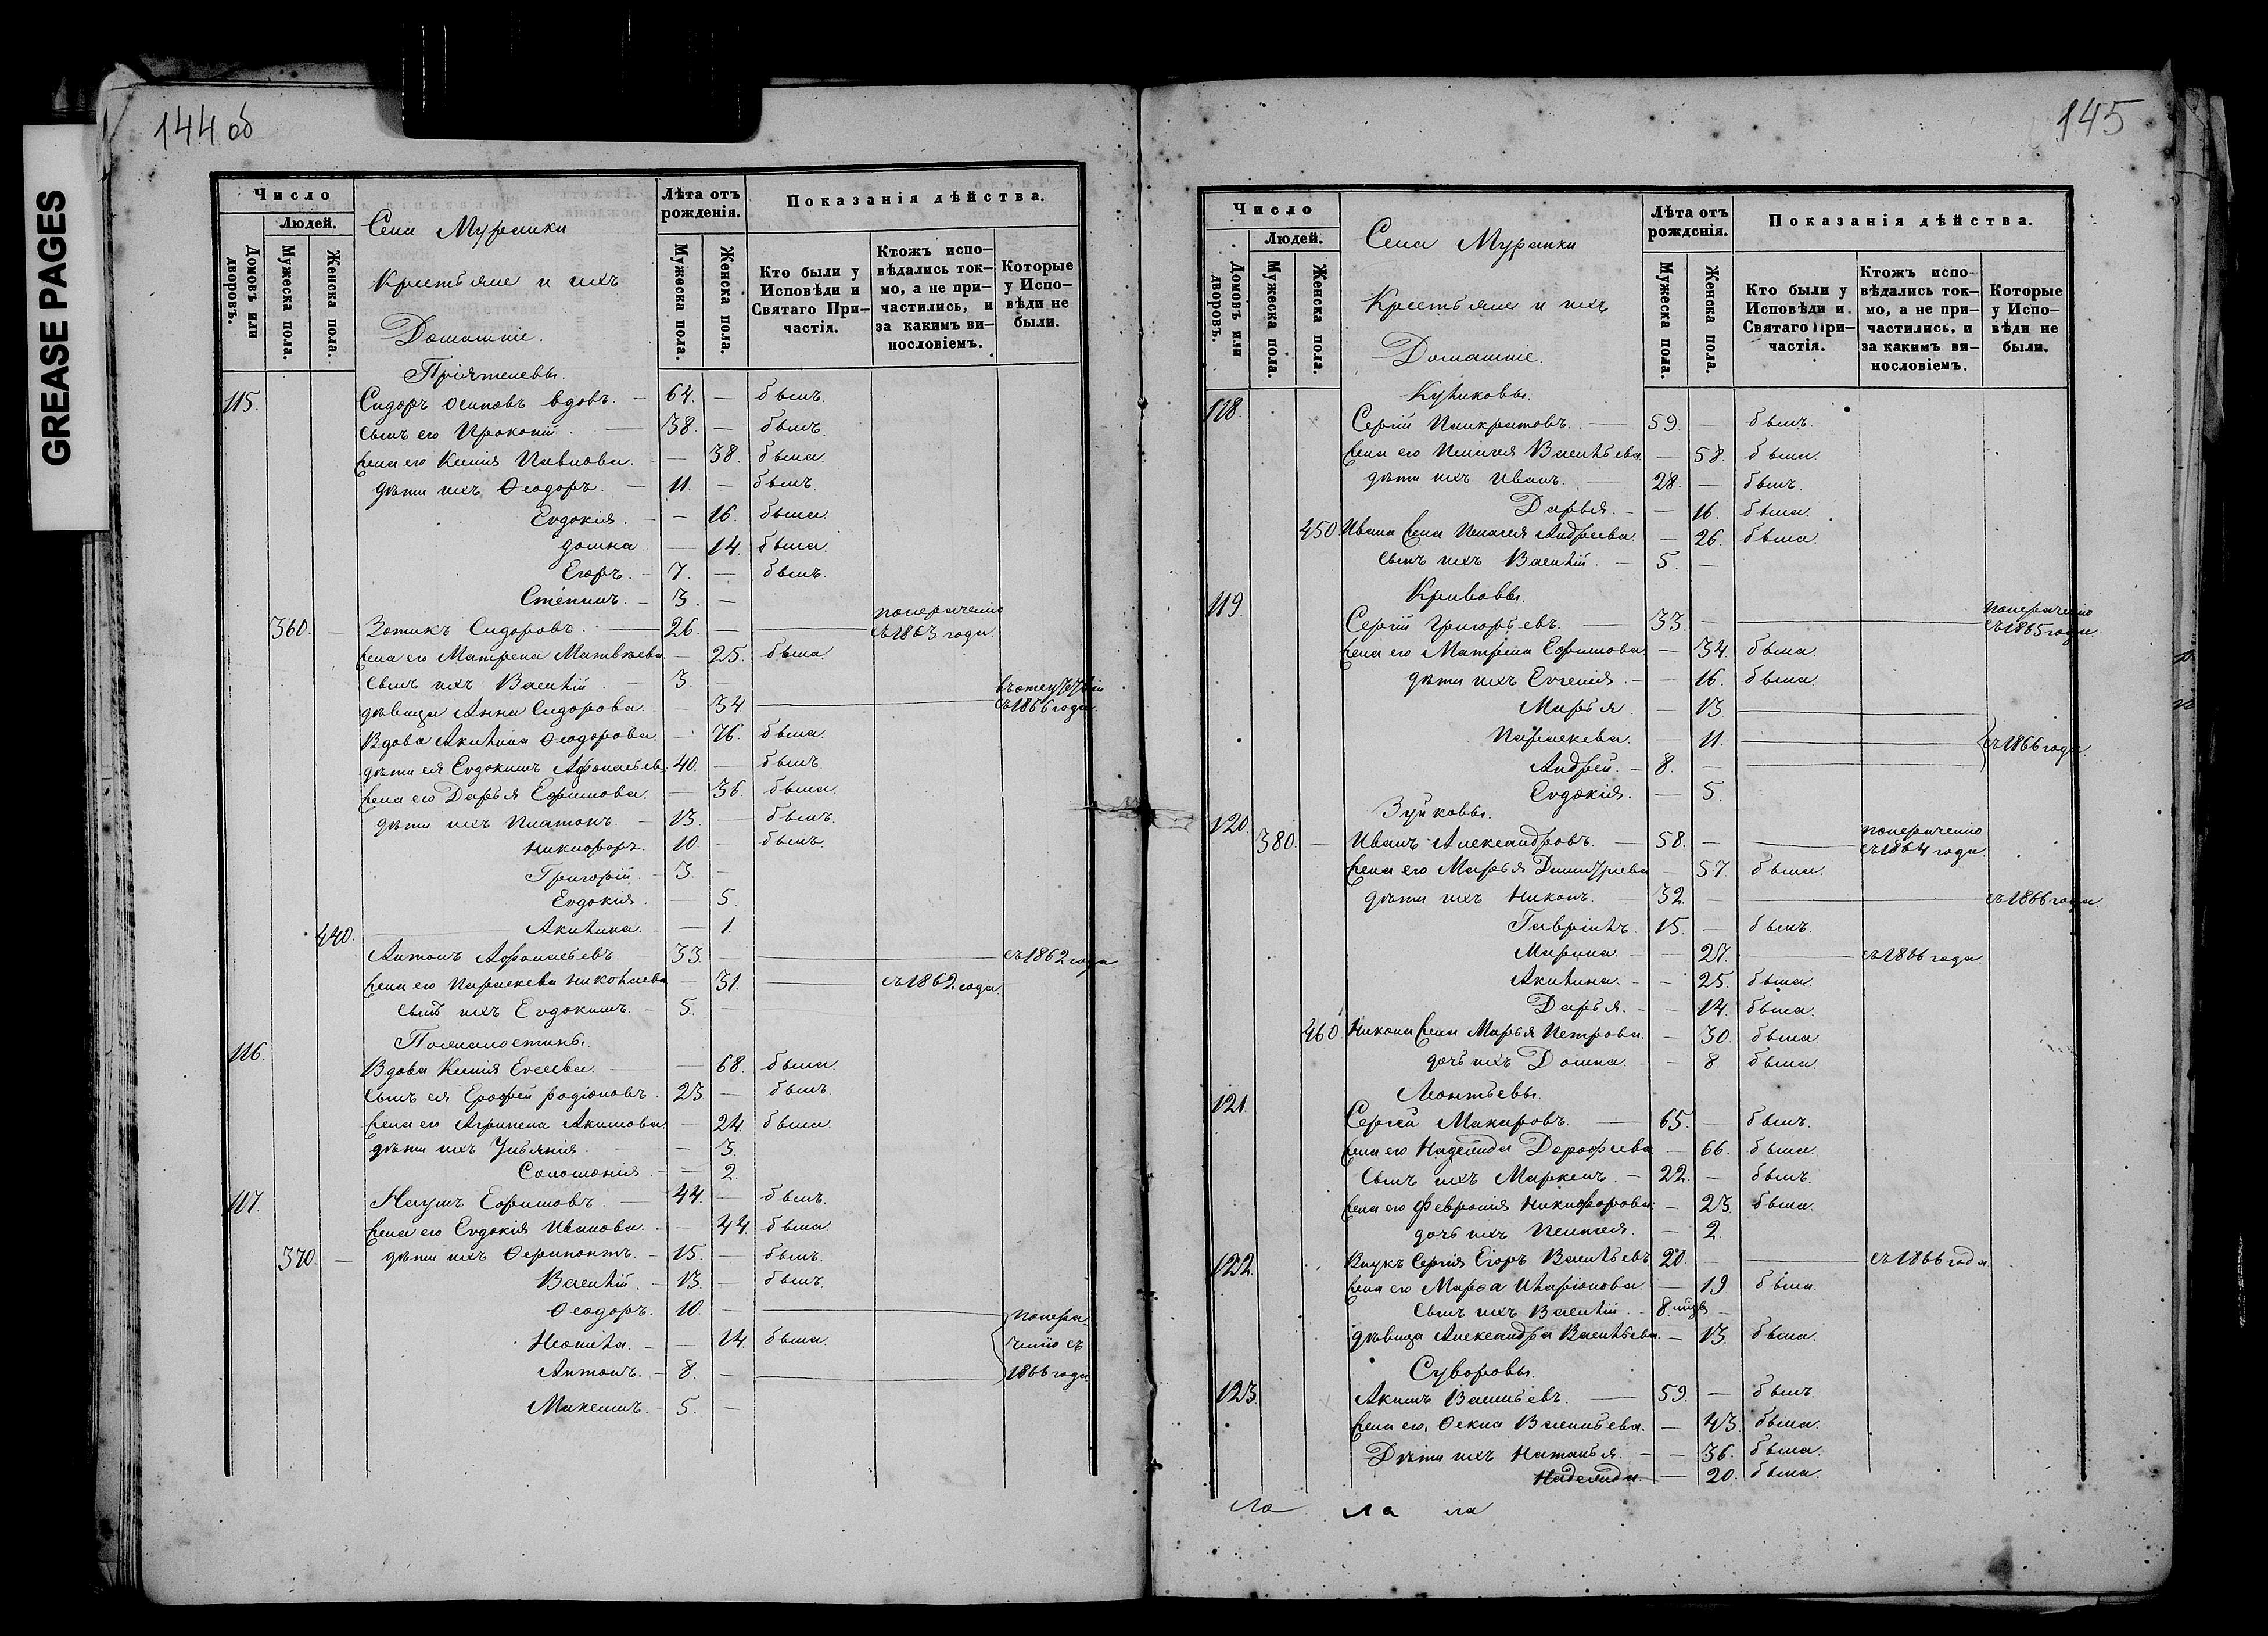 GREASE PAGES
144 об
Число
Людей.
Домовъ или дворовъ.
Мужеска пола.
Женска пола.
Села Муранки
Крестьяне и ихъ
Домашніе.
Лѣта отъ рожденія.
Мужеска пола.
Женска пола.
Показанія дѣйства.
Кто были у Исповѣди и Святаго Причастія.
Ктожъ исповѣдались токмо, а не причастились, и за какимъ винословіемъ.
Которые у Исповѣди не были.
Пріятелевы.
115. Сидоръ Осиповъ вдовъ. — 64. — былъ.
сынъ его Прокопій. — 38. — былъ.
жена его Ксенія Павлова. — 38. была.
дѣти ихъ Ѳеодоръ. — 11. — былъ.
Евдокія. — — 16. была.
Домна — 14. была.
Егоръ. — 7. — былъ.
Степанъ. — 3. —
360. — Зотикъ Сидоровъ. — 26. — — по нераченію съ 1863 года.
жена его Матрена Матвѣева — 25. была.
сынъ ихъ Василій — 3. —
дѣвица Анна Сидорова. — 34. — въ отсутствіи съ 1866 года.
Вдова Акилина Ѳеодорова — 76. была.
дѣти ея Евдокимъ Афонасьевъ 40. — былъ.
жена его Дарья Ефимова. — 36. была.
дѣти ихъ Платонъ. — 13. — былъ.
Никифоръ. 10. — былъ.
Григорій. — 3. —
Евдокія. — 5.
440. Акилина. — 1.
Антонъ Афонасьевъ — 33 — — съ 1862 года
жена его Параскева Николаева — 31. — съ 1862 года.
сынъ ихъ Евдокимъ. — 5. —
116. Вдова Ксенія Евсеева. — — 68. была.
сынъ ея Ерофей Родіоновъ. 23. — былъ.
жена его Агрипена Акимова — 24. была.
дѣти ихъ Ульянія — — 3.
Соломонія — — 2.
117. Наумъ Ефимовъ. — 44. — былъ.
жена его Евдокія Иванова. — — 44. была.
370. — дѣти ихъ Ѳерапонтъ. — 15. — былъ.
Василій. — 13. — былъ.
Ѳеодоръ. 10. — —
Неонила. — — 14. была.
Антонъ. — 8. — —
по нераченію съ 1866 года
5. —
145
Число
Людей.
Домовъ или дворовъ.
Мужеска пола.
Женска пола.
Села Муранки
Крестьяне и ихъ
Домашніе.
Лѣта отъ рожденія.
Мужеска пола.
Женска пола.
Показанія дѣйства.
Кто были у Исповѣди и Святаго Причастія.
Ктожъ исповѣдались токмо, а не причастились, и за какимъ винословіемъ.
Которые у Исповѣди не были.
Куликовы.
118. Сергій Панкратовъ. — 59. — былъ.
жена его Пелагея Васильева. — 58. была.
дѣти ихъ Иванъ. — 28. — былъ.
Дарья. — — 16. была.
450 Ивана жена Пелагея Андреева. — 26. была.
сынъ ихъ Василій. — 5. —
Кривовы.
119. Сергій Григорьевъ. — 33. — — по нераченію съ 1865 года.
жена его Матрена Ефимова — 34. была.
дѣти ихъ Евгенія. — — 16. была.
Марья. — 13 —
Параскева. — 11. — съ 1866 года.
Андрей. — 8. — —
Евдокія. — 5.
Зуйковы.
120. 380. — Иванъ Александровъ. — 58. — — по нераченію съ 1864 года.
жена его Марья Димитріева — 57. была.
дѣти ихъ Никонъ. — 32. — — съ 1866 года.
Гавріилъ. 15. — былъ.
Марина — — 27. — съ 1866 года.
Акилина. — — 25. была.
Дарья. — — 14. была.
460. Никона жена Марья Петрова. — 30. была
дочь ихъ Домна. — — 8 была.
Леонтьевы.
121. Сергей Макаровъ. — 65. — былъ.
жена его Надежда Дорофеева — 66. была.
сынъ ихъ Маркелъ. — 22. — былъ.
жена его Февронія Никифорова — 23. была.
дочь ихъ Пелагея. — 2.
122. Внукъ Сергія Егоръ Васильевъ 20. — — съ 1866 года
жена его Марѳа Иларіонова. — 19 была.
сынъ ихъ Василій. — 8. мѣсц. —
дѣвица Александра Васильева. — 13. была.
Суворовы.
123. Акимъ Васильевъ. — 59. — былъ.
жена его, Ѳекла Васильева. — 43. была.
Дѣти ихъ Наталья. — — 36. была.
Надежда. — 20. была.
ла ла ла